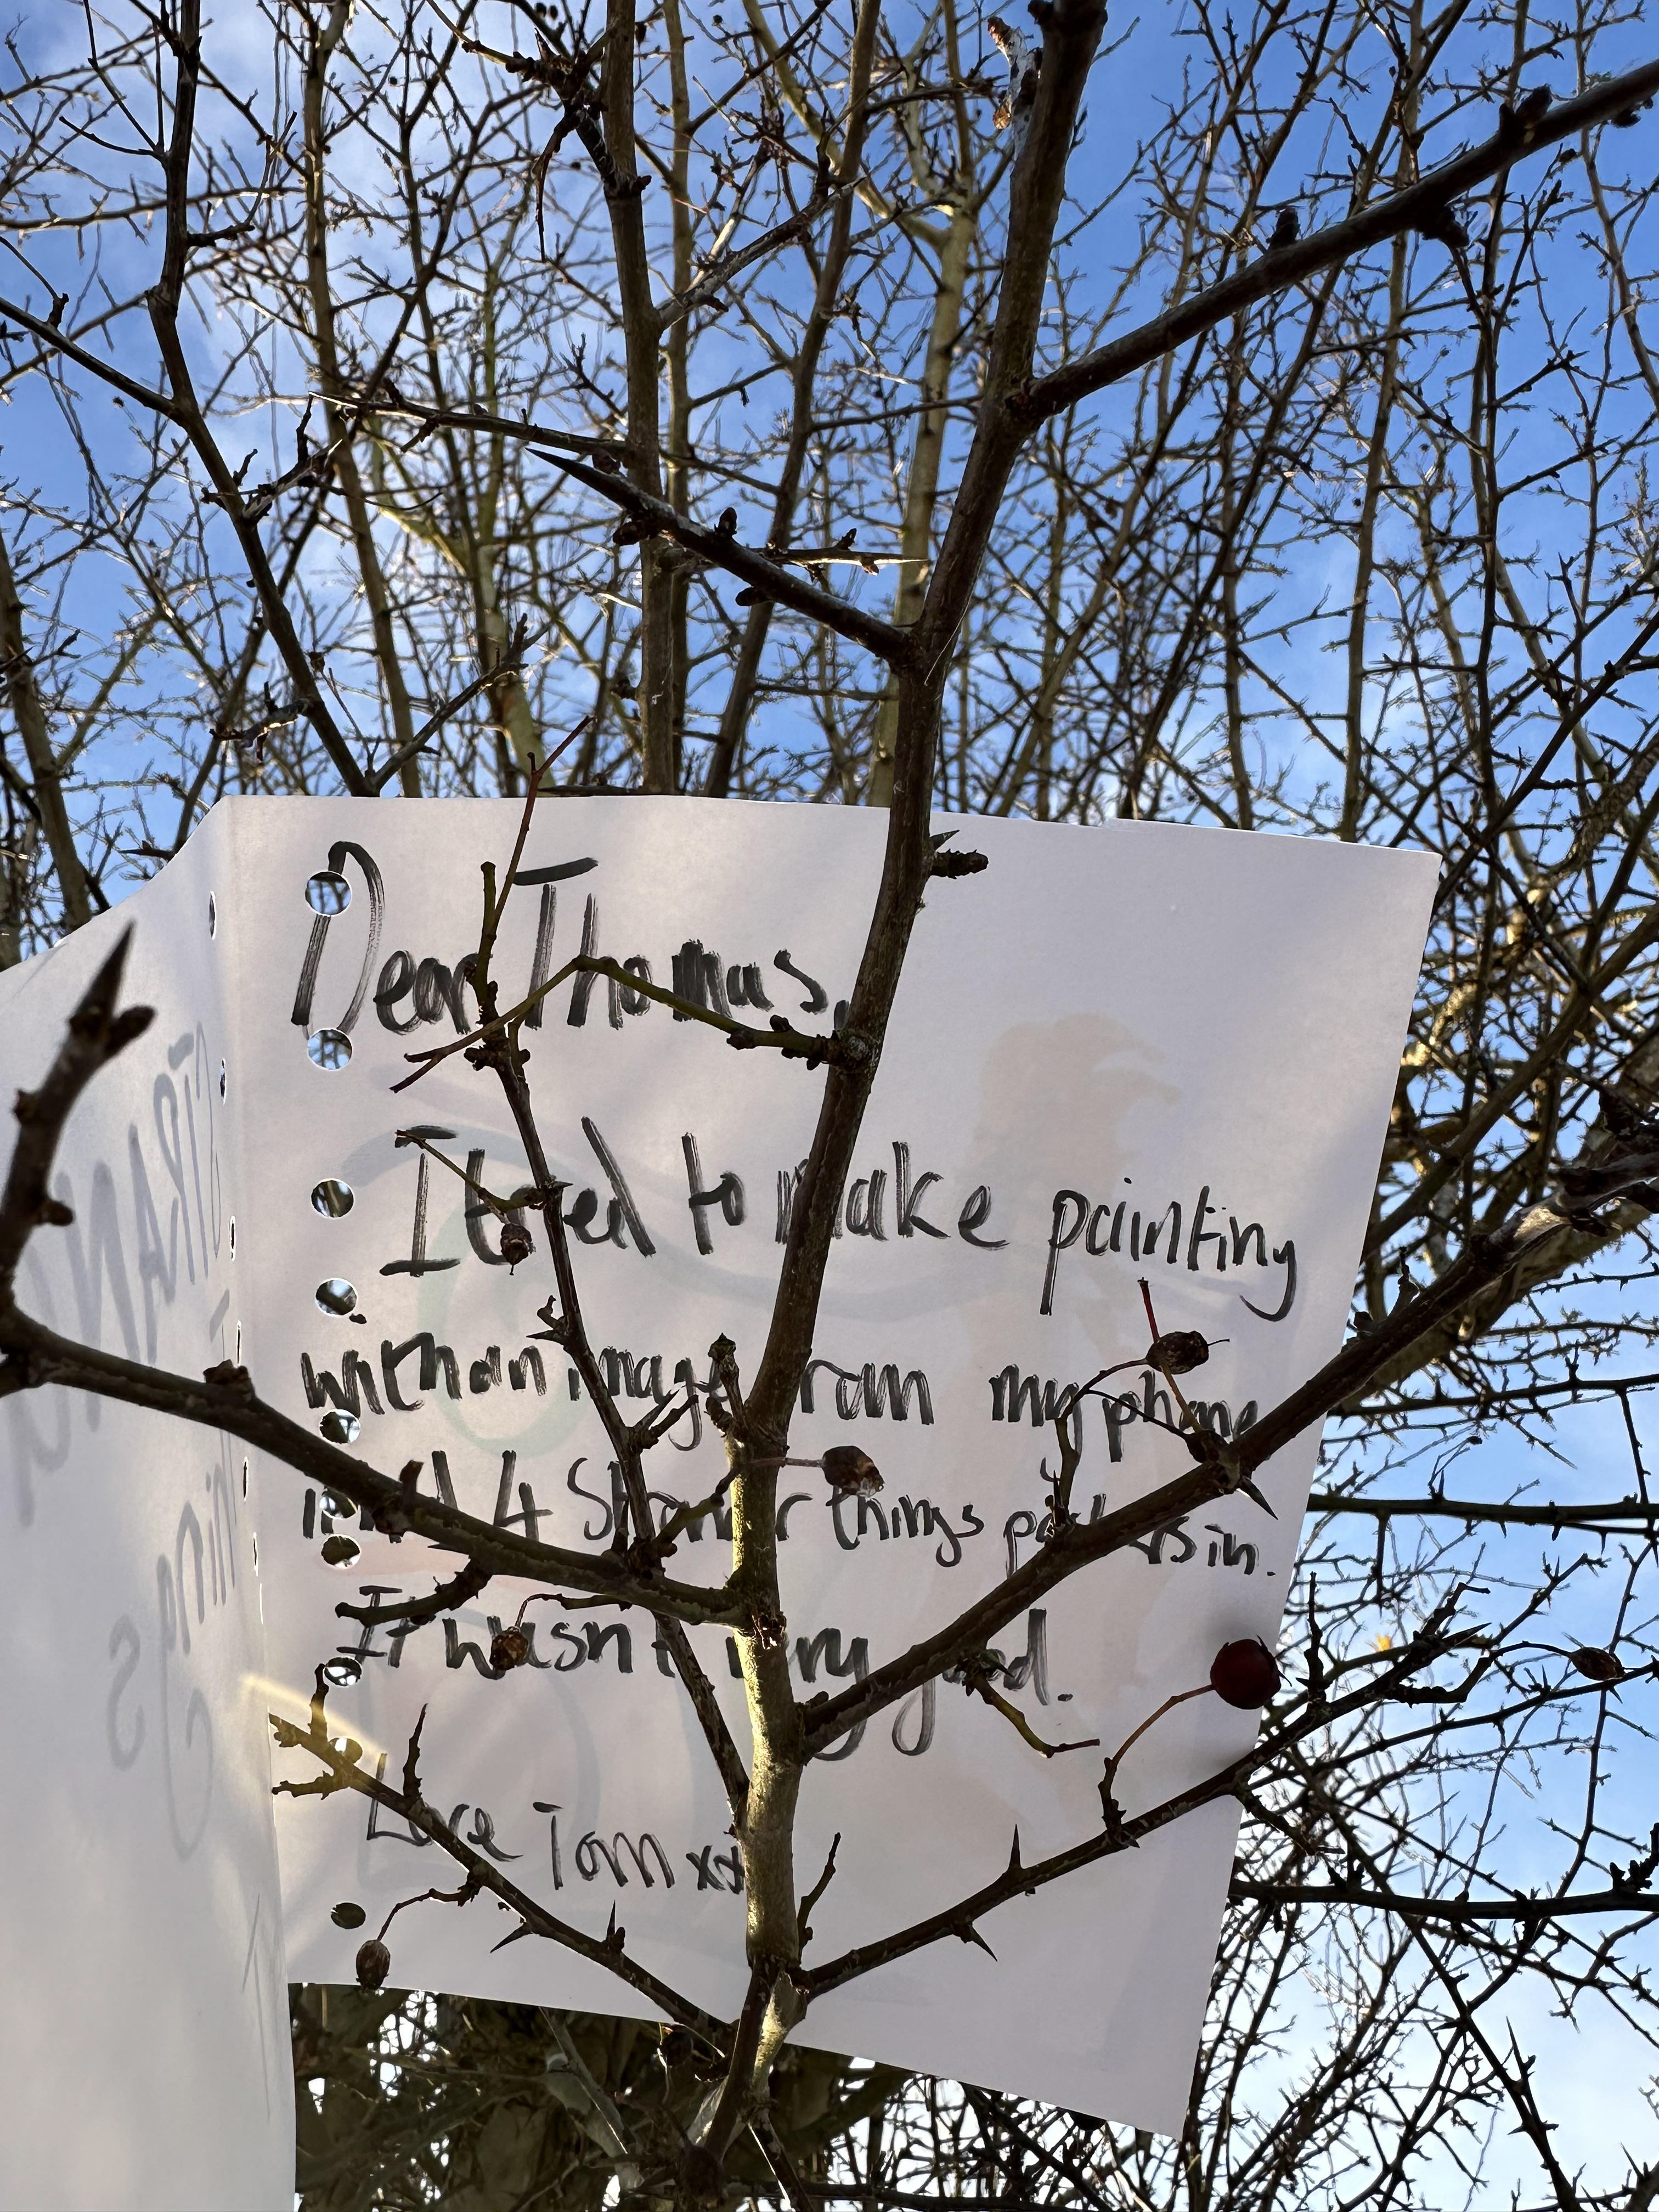 Dear Thomas,
I tried to make painting
with an image from my phone
4 Stranger things in.
It wasn't very good.
Love Tom xxx